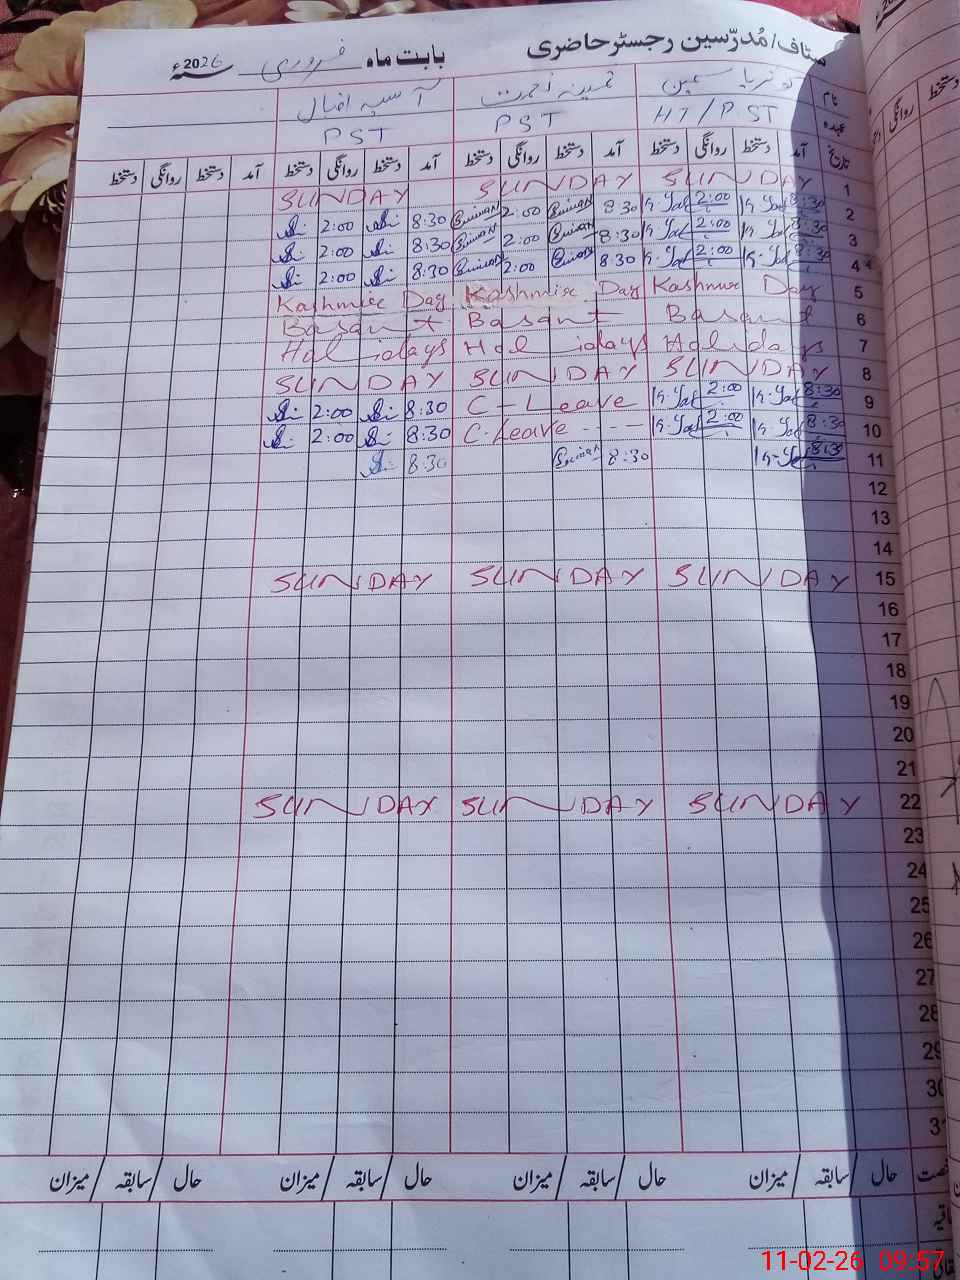 سٹاف/مُدرّسین رجسٹر حاضری بابت ماہ فروری سنہ 2026ء
نام ثمینہ آسیہ اقبال
عہدہ HT/PST PST PST
تاریخ آمد دستخط روانگی دستخط آمد دستخط روانگی دستخط آمد دستخط روانگی دستخط آمد دستخط روانگی دستخط
SUNDAY SUNDAY SUNDAY 1
2:00 8:30 2:00 8:30 2:00 8:30 2
2:00 8:30 2:00 8:30 2:00 8:30 3
2:00 8:30 2:00 8:30 2:00 8:30 4
Kashmir Day Kashmir Day Kashmir Day 5
Basant Basant Basant 6
Holidays Holidays Holidays 7
SUNDAY SUNDAY SUNDAY 8
2:00 8:30 C-Leave 2:00 8:30 9
2:00 8:30 C-Leave ---- 2:00 8:30 10
8:30 8:30 8:3 11
12
13
14
SUNDAY SUNDAY SUNDAY 15
16
17
18
19
20
21
SUNDAY SUNDAY SUNDAY 22
23
24
25
26
27
28
29
30
3
حال / سابقہ / میزان حال / سابقہ / میزان حال / سابقہ / میزان حال / سابقہ / میزان
11-02-26 09:57